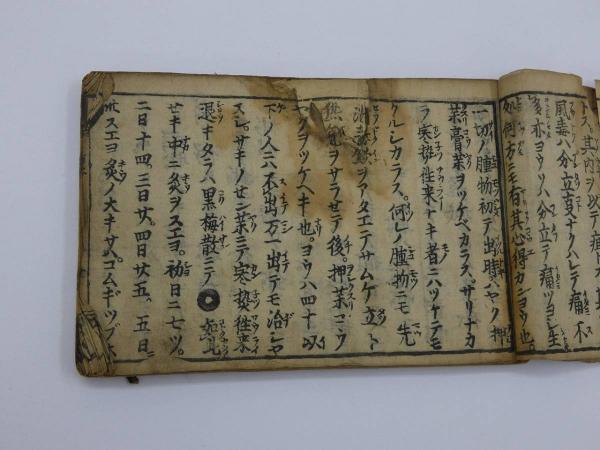 トス。其内ヲ以テ
風毒ハ分立支ナクハレテ痛不
多亦ヨウハ分立テ痛ツヨシ生
処何方ニモ有其心得カンヨウ也
一切ノ腫物初テ出時ハヤク押
薬膏薬ヲツケベカラス、サリナカ
ラ寒熱徃来ナキ者ニハツケテモ
クルシカラス。何レノ腫物ニモ先
ヲアタエテサムケ立ト
熱気ヲサラセテ後。押薬コウ
ヤクヲツケヘキ也。ヨウハ四十以
下ノ人ニハ不出万一出テモ治シヤ
スシ。サキノセン薬ニテ寒熱徃来
退キタラハ黒梅散ニテ 如此
せキ中ニ灸ヲスエヨ。初日ニ七ツ。
二日十四、三日廿、四日廿五、五日
卅スエヨ灸ノ大キサハゴムギツブホ